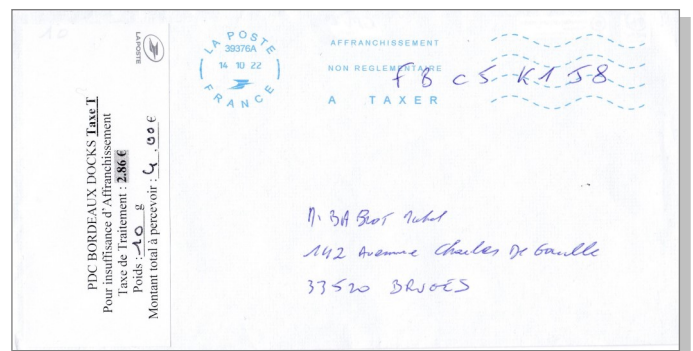 LA POSTE
PDC BORDEAUX DOCKS Taxe T
Pour insuffisance d'Affranchissement
Taxe de Traitement : 2.86 €
Poids : 10 g
Montant total à percevoir : 4.00 €
LA POSTE
39376A
14 10 22
FRANCE
AFFRANCHISSEMENT
NON REGLEMENTAIRE
A TAXER
F8 C5 K1 J8
142 Avenue Charles De Gaulle
33520 BRUGES